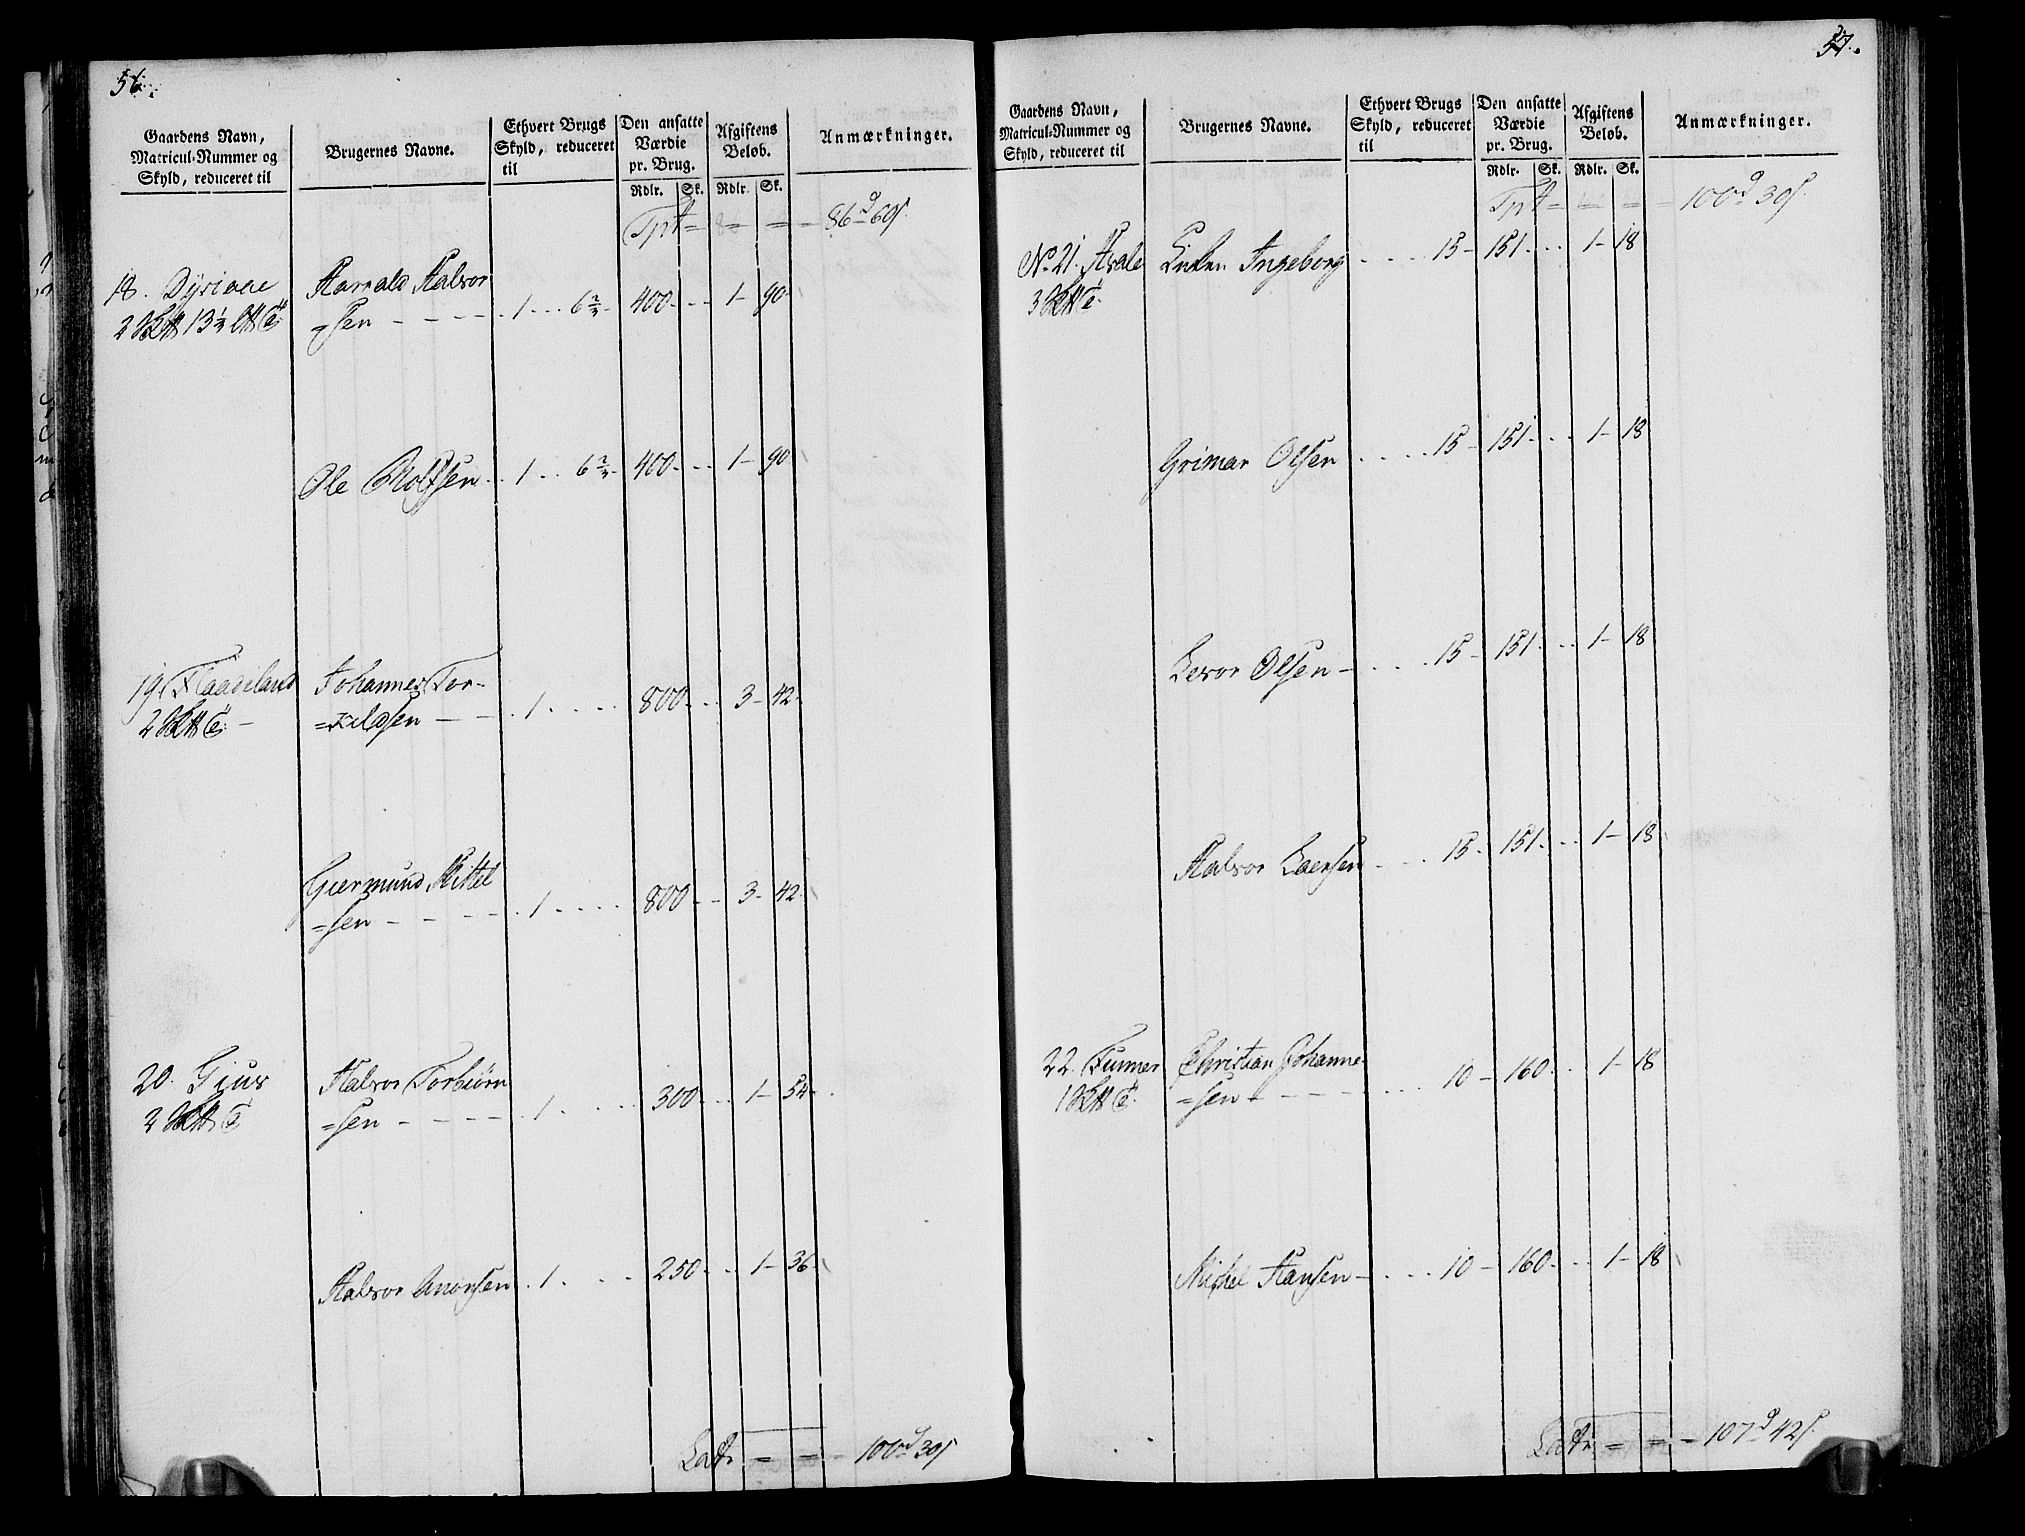 56.
Gaardens Navn,
Matricul-Nummer og
Skyld, reduceret til
Brugernes Navne.
Ethvert Brugs
Skyld, reduceret
til
Den ansatte
Værdie
pr. Brug.
Rdlr. Sk.
Afgiftens
Beløb.
Rdlr. Sk.
Anmærkninger.
Tpt = = = 86d 60s
18. Dyriaae Harrald Halvor
=sen - - - - 1 . . . 6 2/3 400 - . . 1 - 90
Ole Rolfsen . . 1 . . 6 2/3 400 - . . 1 - 90
19 Flaadeland Johannes Tor-
=kildsen - - . 1 . . . . 800 - . . 3 - 42
Giermund Kittel
=sen - - - - . 1 . . . . 800 - . . 3 - 42
20. Gius Halvor Torbiørn
=sen - - - - 1 . . . . 300 - . . 1 - 54
Halvor Anorsen . 1 . . . . 250 - . . 1 - 36
Latr = = - 100d 30s
57.
Gaardens Navn,
Matricul-Nummer og
Skyld, reduceret til
Brugernes Navne.
Ethvert Brugs
Skyld, reduceret
til
Den ansatte
Værdie
pr. Brug.
Rdlr. Sk.
Afgiftens
Beløb.
Rdlr. Sk.
Anmærkninger.
Tpt = = = 100d 30s
No 21. Asdale Enken Ingeborg . . . . 15 - 151 - . . 1 - 18
Grimar Olsen . . . . 15 - 151 - . . 1 - 18
Levor Olsen - . . . . 15 - 151 - . . 1 - 18
Halvor Laersen - . . . 15 - 151 - . . 1 - 18
22. Furner Christian Johanne-
=sen - - - - . . . 10 - 160 - . . 1 - 18
Michel Hansen - . . . 10 - 160 - . . 1 - 18
Latr = = - 107d 42s